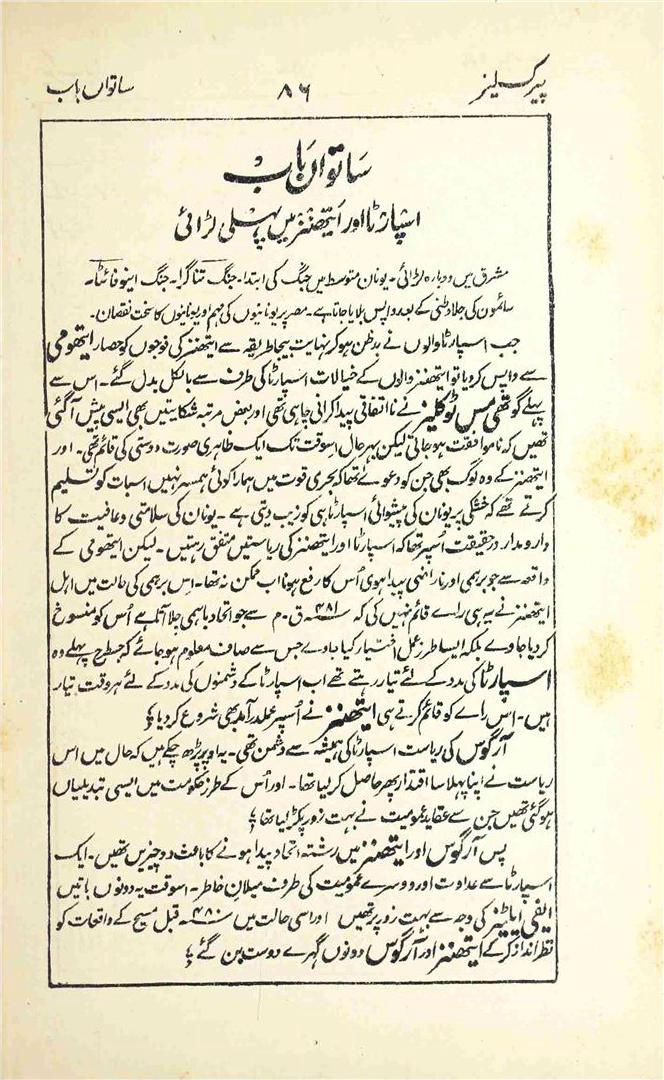 پیرکلیز ۸۶ ساتواں باب
ساتواں باب
اسپارٹا اور ایتھنز میں پہلی لڑائی
مشرق میں دوبارہ لڑائی۔ یونان متوسط میں جنگ کی ابتدا۔ جنگ تناگرا۔ جنگ اینوفائٹا۔
سائمون کی جلاوطنی کے بعد واپس بلایا جاتا ہے۔ مصر پر یونانیوں کی مہم اور یونانیوں کا سخت نقصان۔
جب اسپارٹا والوں نے بدظن ہوکر نہایت بیجا طریقہ سے ایتھنز کی فوجوں کو حصار ایتھومی
سے واپس کردیا تو ایتھنز والوں کے خیالات اسپارٹا کی طرف سے بالکل بدل گئے۔ اس سے
پہلے گو تھمی سٹوکلیز نے نااتفاقی پیدا کرانی چاہی تھی اور بعض مرتبہ شکایتیں بھی ایسی پیش آگئی
تھیں کہ ناموافقت ہوجاتی لیکن بہرحال اسوقت تک ایک ظاہری صورت دوستی کی قائم تھی۔ اور
ایتھنز کے وہ لوگ بھی جن کو دعوے تھا کہ بحری قوت میں ہمارا کوئی ہمسر نہیں اسبات کو تسلیم
کرتے تھے کہ خشکی پر یونان کی پیشوائی اسپارٹا ہی کو زیب دیتی ہے۔ یونان کی سلامتی و عافیت کا
دارومدار درحقیقت اُسپر تھا کہ اسپارٹا اور ایتھنز کی ریاستیں متفق رہتیں۔ لیکن ایتھومی کے
واقعہ سے جو برہمی اور ناراضی پیدا ہوی اُس کا رفع ہونا اب ممکن نہ تھا۔ اس برہمی کی حالت میں اہل
ایتھنز نے یہ ہی رائے قائم نہیں کی کہ ۴۸۱ ق۔م سے جو اتحاد باہمی چلا آتا ہے اُس کو منسوخ
کردیا جاوے بلکہ ایسا طرز عمل اختیار کیا جاوے جس سے صاف معلوم ہوجائے کہ جسطرح پہلے وہ
اسپارٹا کی مدد کے لئے تیار رہتے تھے اب اسپارٹا کے دشمنوں کی مدد کے لئے ہر وقت تیار
ہیں۔ اس رائے کو قائم کرتے ہی ایتھنز نے اُسپر عملدرآمد بھی شروع کردیا؛
آرگوس کی ریاست اسپارٹا کی ہمیشہ سے دشمن تھی۔ یہ اوپر پڑھ چکے ہیں کہ حال میں اس
ریاست نے اپنا پہلا سا اقتدار پھر حاصل کرلیا تھا۔ اور اُس کے طرز حکومت میں ایسی تبدیلیاں
ہوگئی تھیں جن سے عقاید عمومیت نے بہت زور پکڑ لیا تھا؛
پس آرگوس اور ایتھنز میں رشتہ اتحاد پیدا ہونے کا باعث دو چیزیں تھیں۔ ایک
اسپارٹا سے عداوت اور دوسرے عمومیت کی طرف میلان خاطر۔ اسوقت یہ دونوں باتیں
ایفی ایالٹیز کی وجہ سے بہت زور پر تھیں اور اسی حالت میں ۴۸۰ قبل مسیح کے واقعات کو
نظر انداز کرکے ایتھنز اور آرگوس دونوں گہرے دوست بن گئے؛